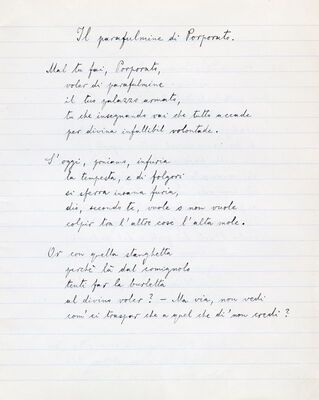 Il parafulmine di Porporato.
Mal tu fai, Porporato,
voler di parafulmine
il tuo palazzo armato,
tu che insegnando vai che tutto accade
per divina infallibil volontade.
S'oggi, poniam, infuria
la tempesta, e di folgori
si sferra insana furia,
dio, secondo te, vuole o non vuole
colpir tra l'altre cose l'alta mole.
Or con quella stanghetta
perchè là dal comignolo
tenti far la burletta
al divino voler? – Ma via, non vedi
com' ci traspar che a quel che di' non credi?